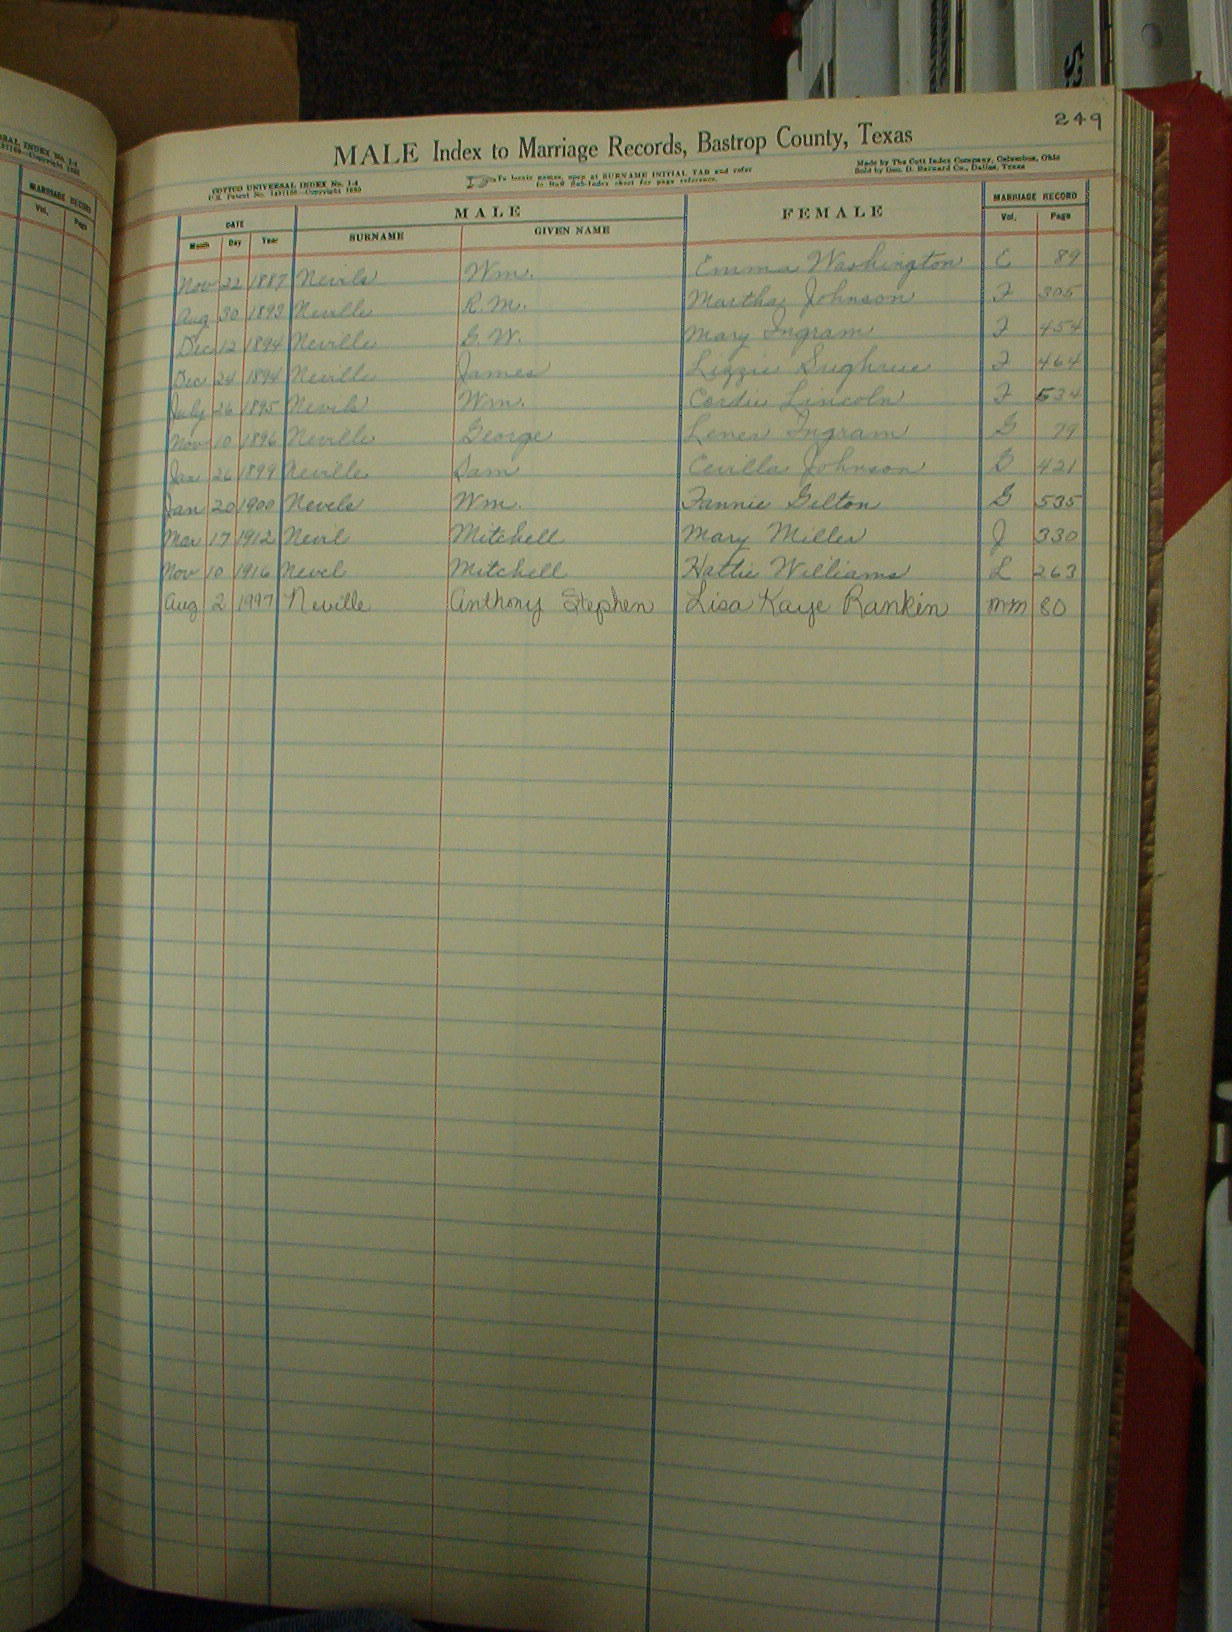 249
MALE Index to Marriage Records, Bastrop County, Texas
COTTCO UNIVERSAL INDEX No. I-4
To locate names, open at SURNAME INITIAL TAB and refer
to Buff Sub-Index sheet for page reference.
Made by The Cott Index Company, Columbus, Ohio
Sold by Geo. D. Barnard Co., Dallas, Texas
DATE MALE FEMALE MARRIAGE RECORD
Month Day Year SURNAME GIVEN NAME Vol. Page
Nov 22 1887 Nevils Wm. Emma Washington E 89
Aug 30 1893 Neville R.M. Martha Johnson F 305
Dec 12 1894 Neville G.W. Mary Ingram F 454
Dec 24 1894 Neville James Lizzie Sughrue F 464
July 26 1895 Nevils Wm. Cordie Lincoln F 534
Nov 10 1896 Neville George Lener Ingram G 79
Jan 26 1899 Neville Sam Cevilla Johnson G 421
Jan 20 1900 Nevels Wm. Fannie Gelton G 535
Mar 17 1912 Nevil Mitchell Mary Miller J 330
Nov 10 1916 Nevel Mitchell Hattie Williams L 263
Aug 2 1997 Neville Anthony Stephen Lisa Kaye Rankin MM 80
MARRIAGE RECORD
Vol. Page